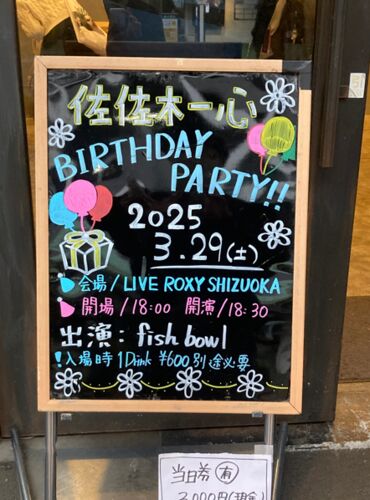 佐佐木一心
BIRTHDAY
PARTY!!
2025
3.29(土)
会場/LIVE ROXY SHIZUOKA
開場/18:00 開演/18:30
出演：fish bowl
!入場時1Drink ¥600別途必要
当日券 有
3,000円(現金